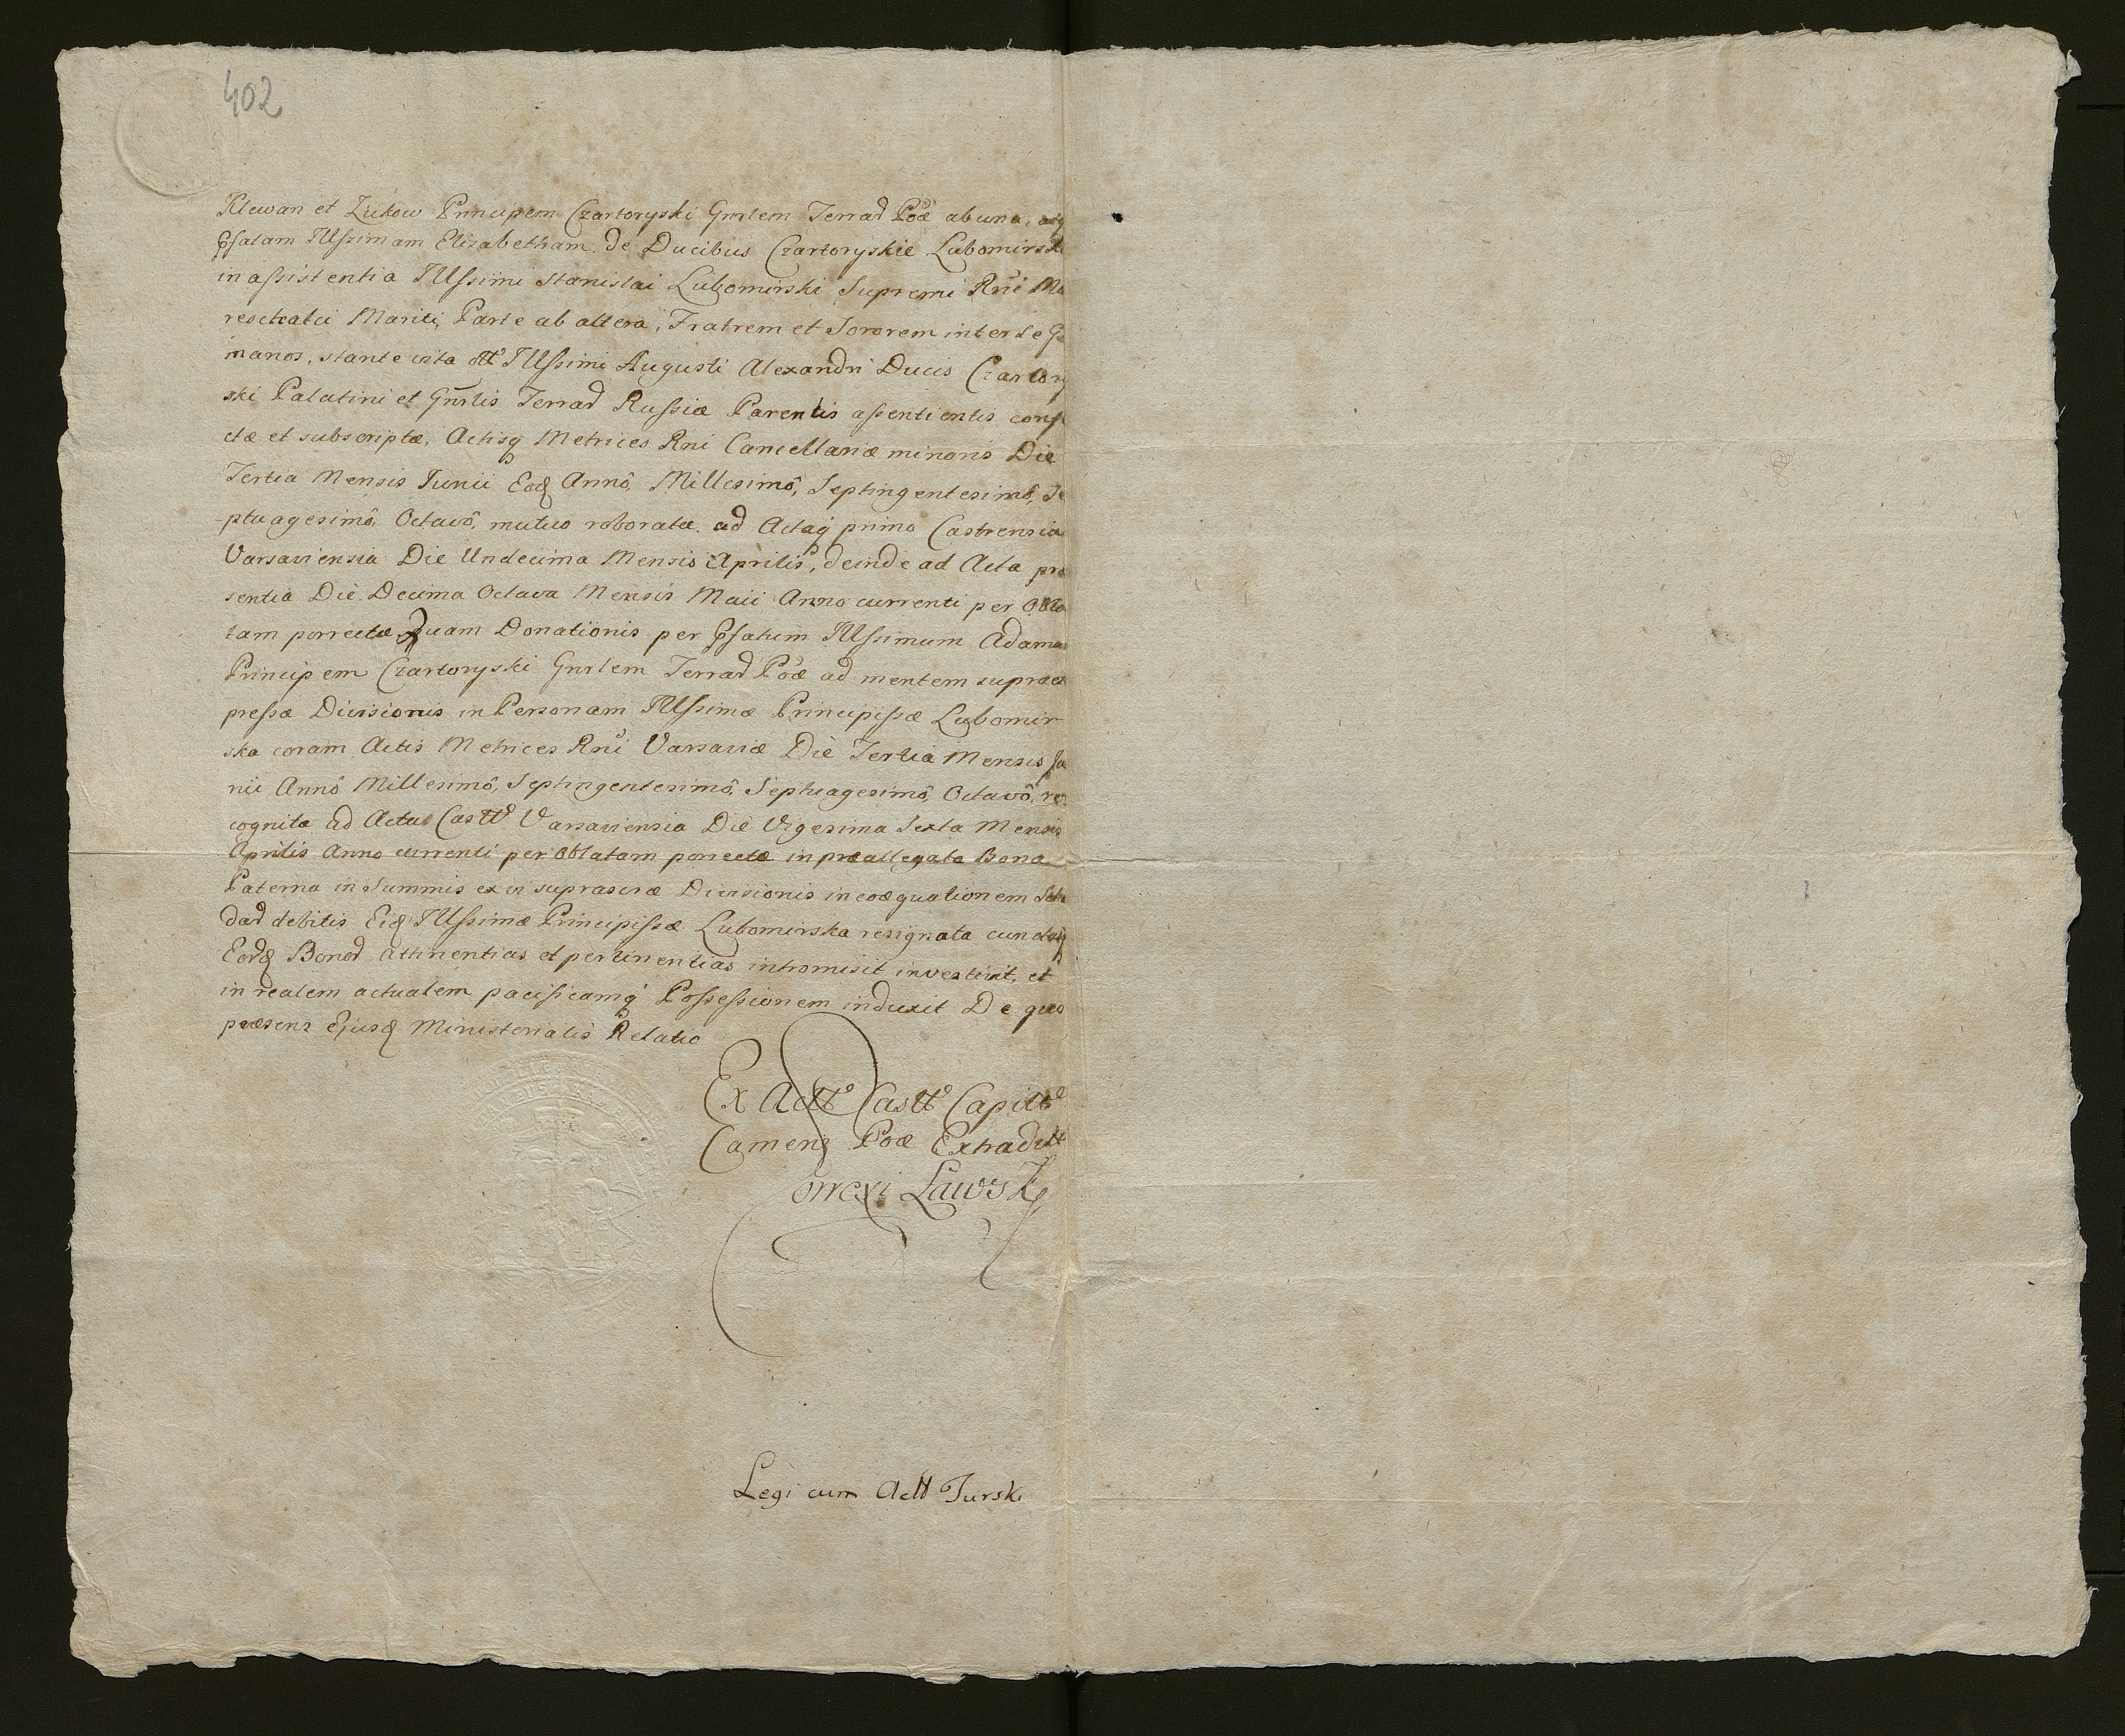 402
Klewan et Zukow Principem Czartoryski Gnrlem Terrad Poæ ab una, atq
Illssimam Elizabetham de Ducibus Czartoryskie Lubomirsk
in assistentia Illssimi Stanislai Lubomirski Supremi Rni Ma
reschalci Mariti, Parte ab altera, Fratrem et Sororem inter se
manos, stante vita Illssimi Augusti Alexandri Ducis Czartory
ski Palatini et Gnrlis Terrad Russiæ Parentis assentientis conf
ctæ et subscriptæ, Actisq Metrices Rni Cancellariæ minoris Die
Tertia Mensis Junii Eod Annô, Millesimô, Septingentesimô, Se
ptuagesimô, Octavô, mutuo roboratæ ad Actaq primo Castrensia
Varsaviensia Die Undecima Mensis Aprilis, deinde ad Acta præ
sentia Die Decima Octava Mensis Maii Anno currenti per Obla
tam porrectæ, quam Donationis per Illssimum Adamum
Principem Czartoryski Gnrlem Terrad Poæ ad mentem supraex
pressæ Divisionis in Personam Illssimæ Principissæ Lubomir
ska coram Actis Metrices Rni Varsaviæ Die Tertia Mensis Ju
nii Annô Millesimô, Septingentesimô, Septuagesimô, Octavô, re
cognitæ ad Acta Castt Varsaviensia Die Vigesima Sexta Mensis
Aprilis Anno currenti per Oblatam porrectæ in præallegata Bona
Paterna in Summis ex vi Divisionis in coæquationem
debitis Eid Illssimæ Principissæ Lubomirska resignata cunctasq
Bonor attinentias et pertinentias intromisit investivit, et
in realem actualem pacificamq Possessionem induxit De quo
præsens Ejusd Ministerialis Relatio
Ex Actt Castt Capitt
Camene Poæ Extradit
Correxi Lawski
Legi cum Actt Turski